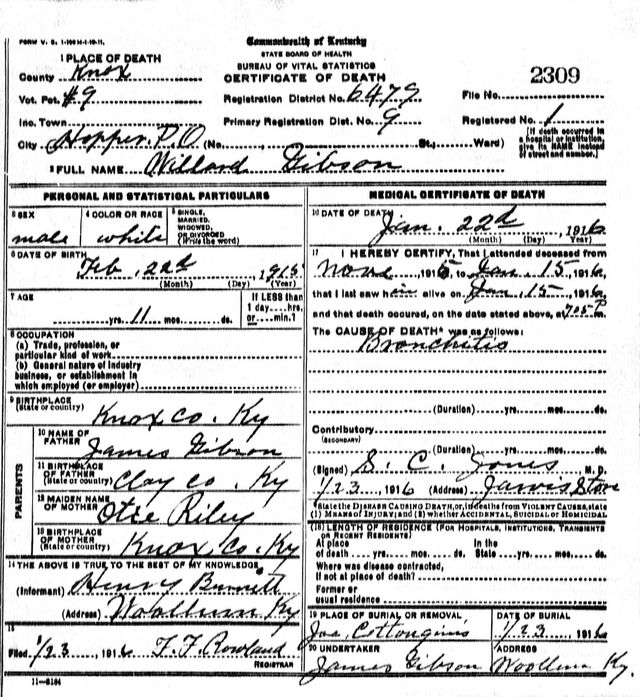 FORM V. S. 1-100M-1-10-11.
Commonwealth of Kentucky
STATE BOARD OF HEALTH
BUREAU OF VITAL STATISTICS
CERTIFICATE OF DEATH
1 PLACE OF DEATH
County Knox
Vot. Pct. #9
Inc. Town
City Hopper P.O. (No. , St., Ward)
Registration District No. 6479
Primary Registration Dist. No. 9
2309
File No.
Registered No. 1
[If death occurred in a hospital or institution, give its NAME instead of street and number.]
2 FULL NAME Willard Gibson
PERSONAL AND STATISTICAL PARTICULARS
3 SEX male
4 COLOR OR RACE white
5 SINGLE, MARRIED, WIDOWED, OR DIVORCED (Write the word)
6 DATE OF BIRTH Feb. 22d, 1915
(Month) (Day) (Year)
7 AGE
yrs. 11 mos. ds.
If LESS than 1 day....hrs. or....min.?
8 OCCUPATION
(a) Trade, profession, or particular kind of work
(b) General nature of industry business, or establishment in which employed (or employer)
9 BIRTHPLACE (State or country) Knox Co. Ky
PARENTS
10 NAME OF FATHER James Gibson
11 BIRTHPLACE OF FATHER (State or country) Clay Co. Ky
12 MAIDEN NAME OF MOTHER Otie Riley
13 BIRTHPLACE OF MOTHER (State or country) Knox Co. Ky
14 THE ABOVE IS TRUE TO THE BEST OF MY KNOWLEDGE
(Informant) Henry Burnett
(Address) Woollum Ky
15
Filed 1/23, 1916 F. F. Rowland
REGISTRAR
11—8184
MEDICAL CERTIFICATE OF DEATH
16 DATE OF DEATH Jan. 22d, 1916
(Month) (Day) (Year)
17 I HEREBY CERTIFY, That I attended deceased from
1915, to Jan. 15, 1916,
that I last saw him alive on Jan. 15, 1916,
and that death occured, on the date stated above, at 705 P m.
The CAUSE OF DEATH* was as follows:
Bronchitis
(Duration) yrs. mos. ds.
Contributory
(SECONDARY)
(Duration) yrs. mos. ds.
(Signed) S. C. Jones M. D.
1/23 1916 (Address) Jarvis Store
*State the DISEASE CAUSING DEATH, or, in deaths from VIOLENT CAUSES, state (1) MEANS OF INJURY; and (2) whether ACCIDENTAL, SUICIDAL or HOMICIDAL
(18) LENGTH OF RESIDENCE (FOR HOSPITALS, INSTITUTIONS, TRANSIENTS OR RECENT RESIDENTS)
At place of death yrs. mos. ds. In the State yrs. mos. ds.
Where was disease contracted, if not at place of death?
Former or usual residence
19 PLACE OF BURIAL OR REMOVAL Joe
DATE OF BURIAL 1/23, 1916
20 UNDERTAKER James Gibson
ADDRESS Woollum Ky.